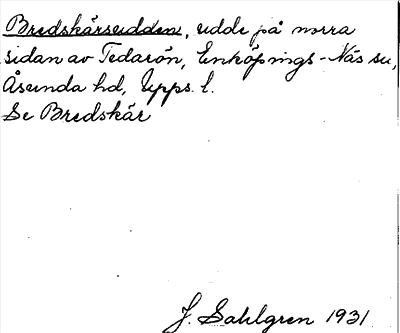 Bredskärsudden, udde på norra
sidan av Tedarön, Enköpings-Näs sn,
Åsunda hd, Upps. l.
Se Bredskär
J. Sahlgren 1931